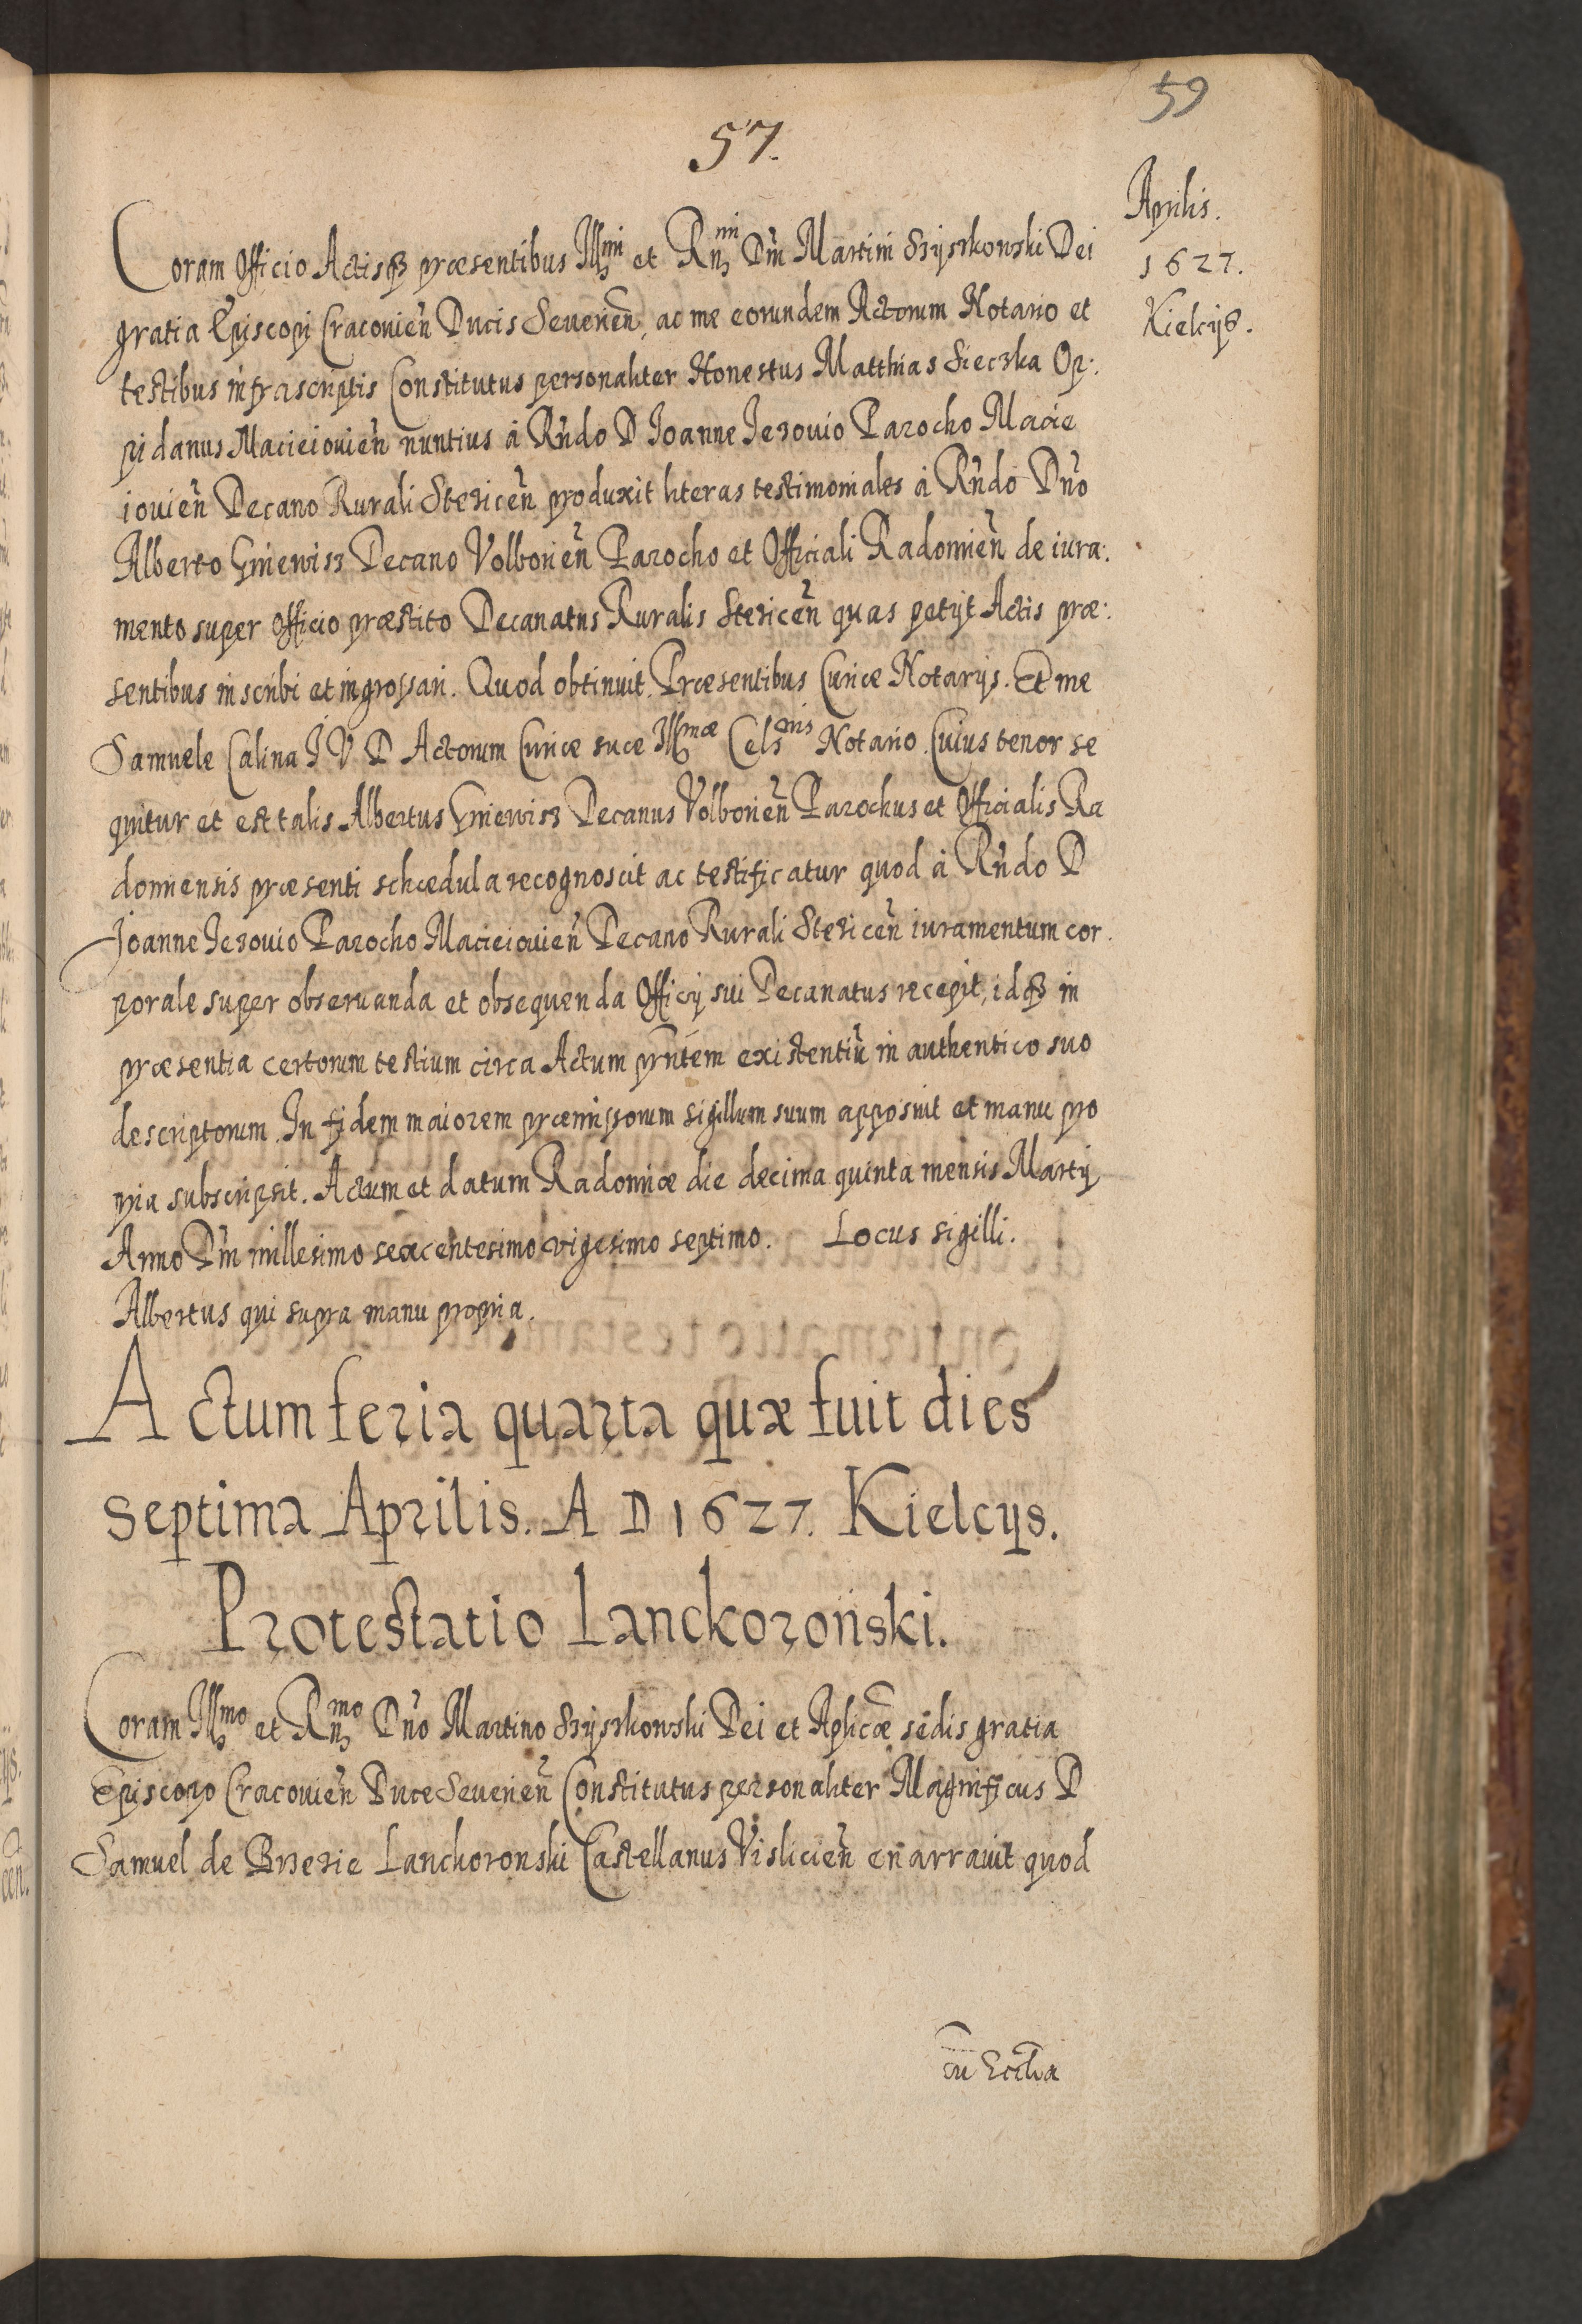 59
57.
Aprilis.
1627.
Kielcijs.
Coram Officio Actisq3 præsentibus Illmi et Rmi Dni Martini Szyszkowski Dei
gratia Episcopi Cracovien Ducis Severien, ac me eorundem Actorum Notario et
testibus infrascriptis Constitutus personaliter Honestus Matthias Sieczka Op:
pidanus Macieiovien nuntius à Rndo D Ioanne Jezovio Parocho Macie
iovien Decano Rurali Stezicen produxit literas testimoniales à Rndo Dno
Alberto Gniewisz Decano Volborien Parocho et Officiali Radomien de iura:
mento super Officio præstito Decanatus Ruralis Stezicen quas petijt Actis præ:
sentibus inscribi et ingrossari. Quod obtinuit. Præsentibus Curiæ Notarijs. Et me
Samuele Calina I V D Actorum Curiæ suæ Illmæ Celsnis Notario. Cuius tenor se
quitur et est talis. Albertus Gniewisz Decanus Volborien Parochus et Officialis Ra
domiensis præsenti schædula recognoscit ac testificatur quod à Rndo D
Joanne Jezovio Parocho Macieiovien Decano Rurali Stezicen iuramentum cor.
porale super observanda et obsequenda Officij sui Decanatus recepit, idq3 in
præsentia certorum testium circa Actum pñtem existentiū in authentico suo
descriptorum. In fidem maiorem præmissorum sigillum suum apposuit et manu pro
pria subscripsit. Actum et datum Radomiæ die decima quinta mensis Martij
Anno Dni millesimo sexcentesimo vigesimo septimo. Locus sigilli.
Albertus qui supra manu propria.
Actum feria quarta quæ fuit dies
septima Aprilis. A D 1627. Kielcijs.
Protestatio Lanckoroński.
Coram Illmo et Rmo Dño Martino Szyszkowski Dei et Aplicæ sedis gratia
Episcopo Cracovien Duce Severien Constitutus personaliter Magnificus D
Samuel de Brzezie Lanckoronski Castellanus Vislicien enarravit quod
Eccl̃ia